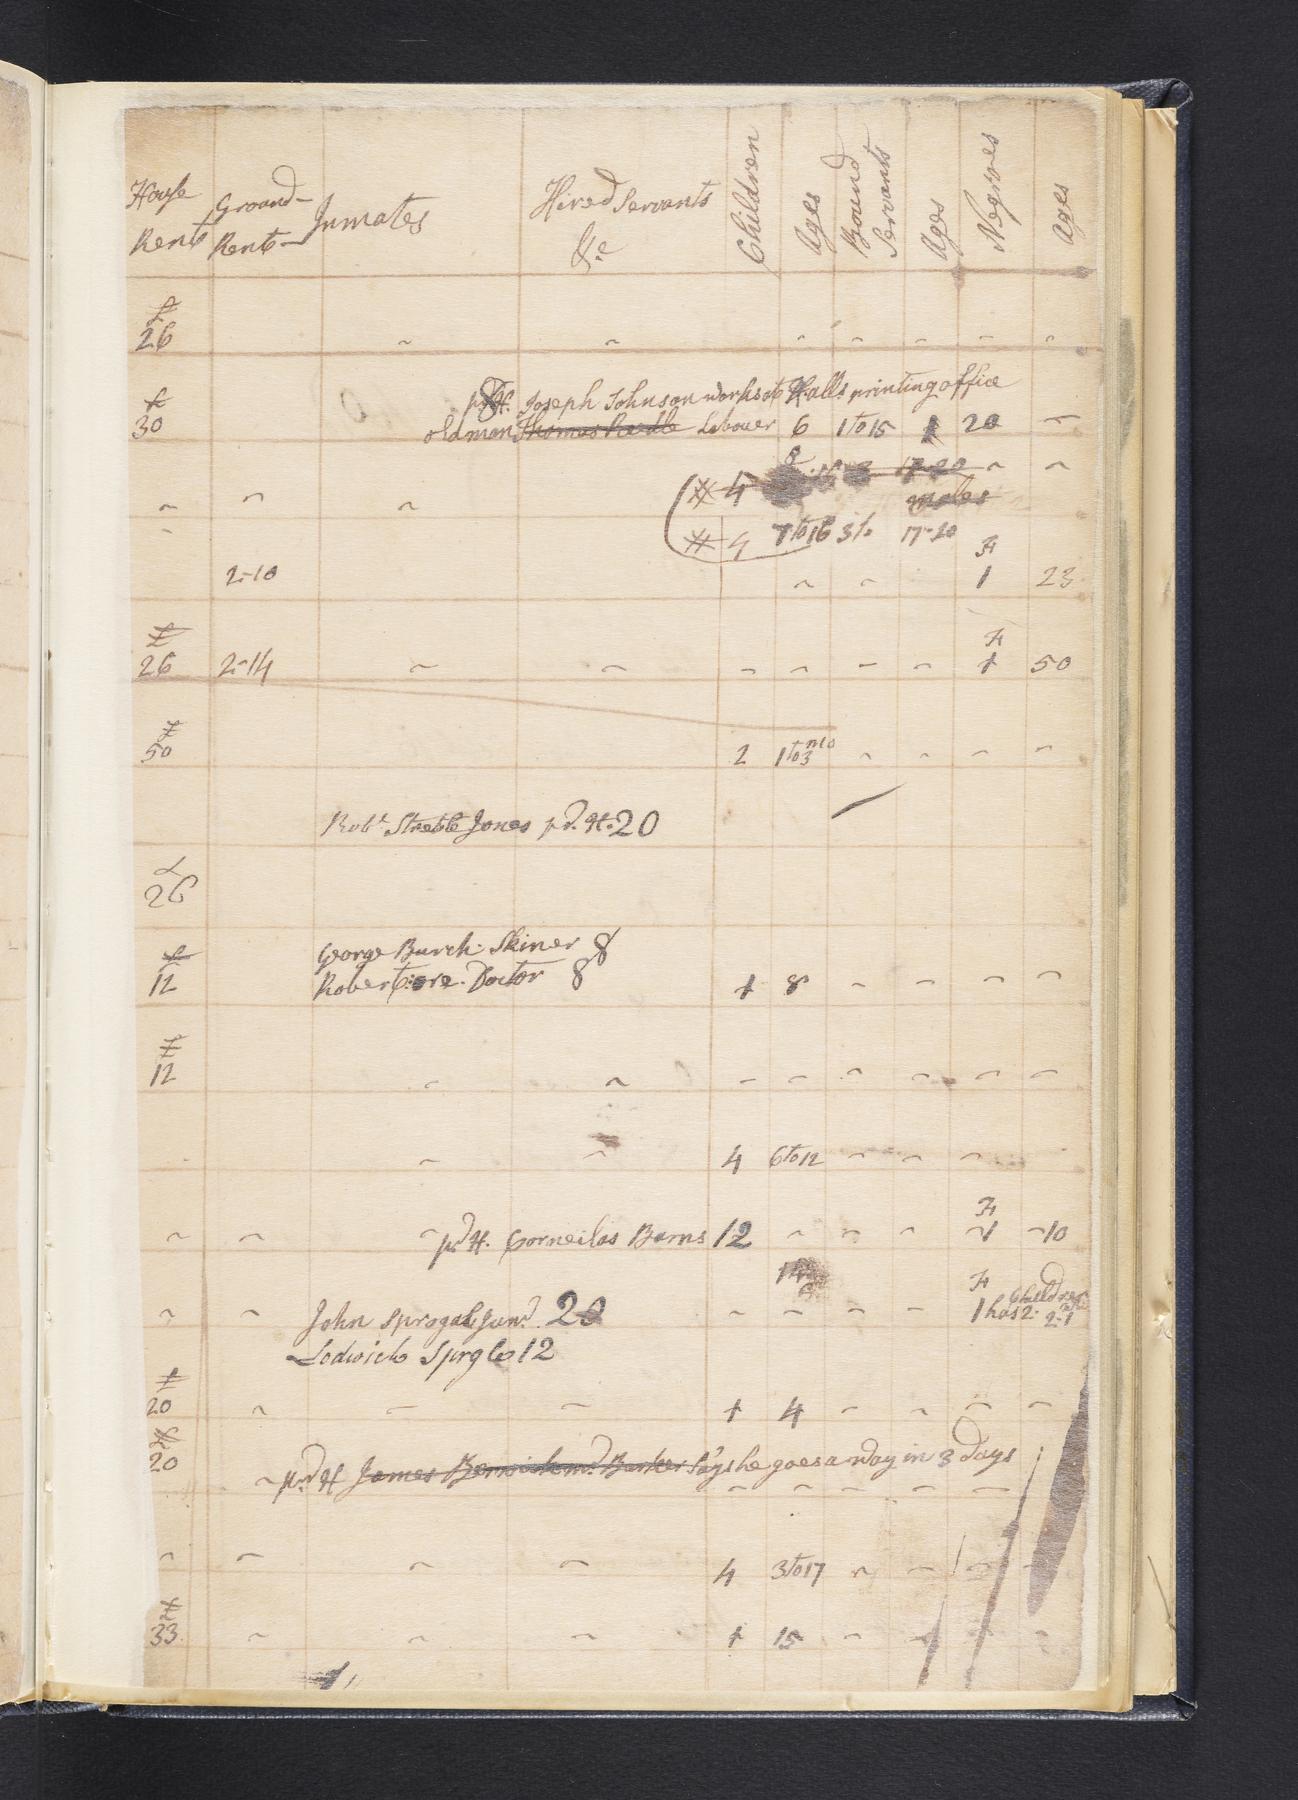 House Rent Ground Rent Inmates Hired Servants &c Children Ages Bound Servants Ages Negroes Ages
£
26
pr H. Joseph Johnson works at Halls printing office
£
30 old man Thomas Labouer 6 1 to 15 1 20
4 17-20
males
4 7 to 16 3 17-20
F
2-10 1 23
£ F
26 2-14 1 50
£
50 2 1 to 3 mo
Robt. Jones pd. H. 20
£
26
George Burch. Skiner 8
£
12 Robert Doctor 8 1 8
£
12
4 6 to 12
F
pd H. Corneilas Barns 12 1 10
14
F Children
John Sprogal Junr. 20 1 has 2. 2-1
Lodwick 12
£
20 1 4
£
20 pd H James Barker Says he goes away in 3 days
4 3 to 17
£
33 1 15